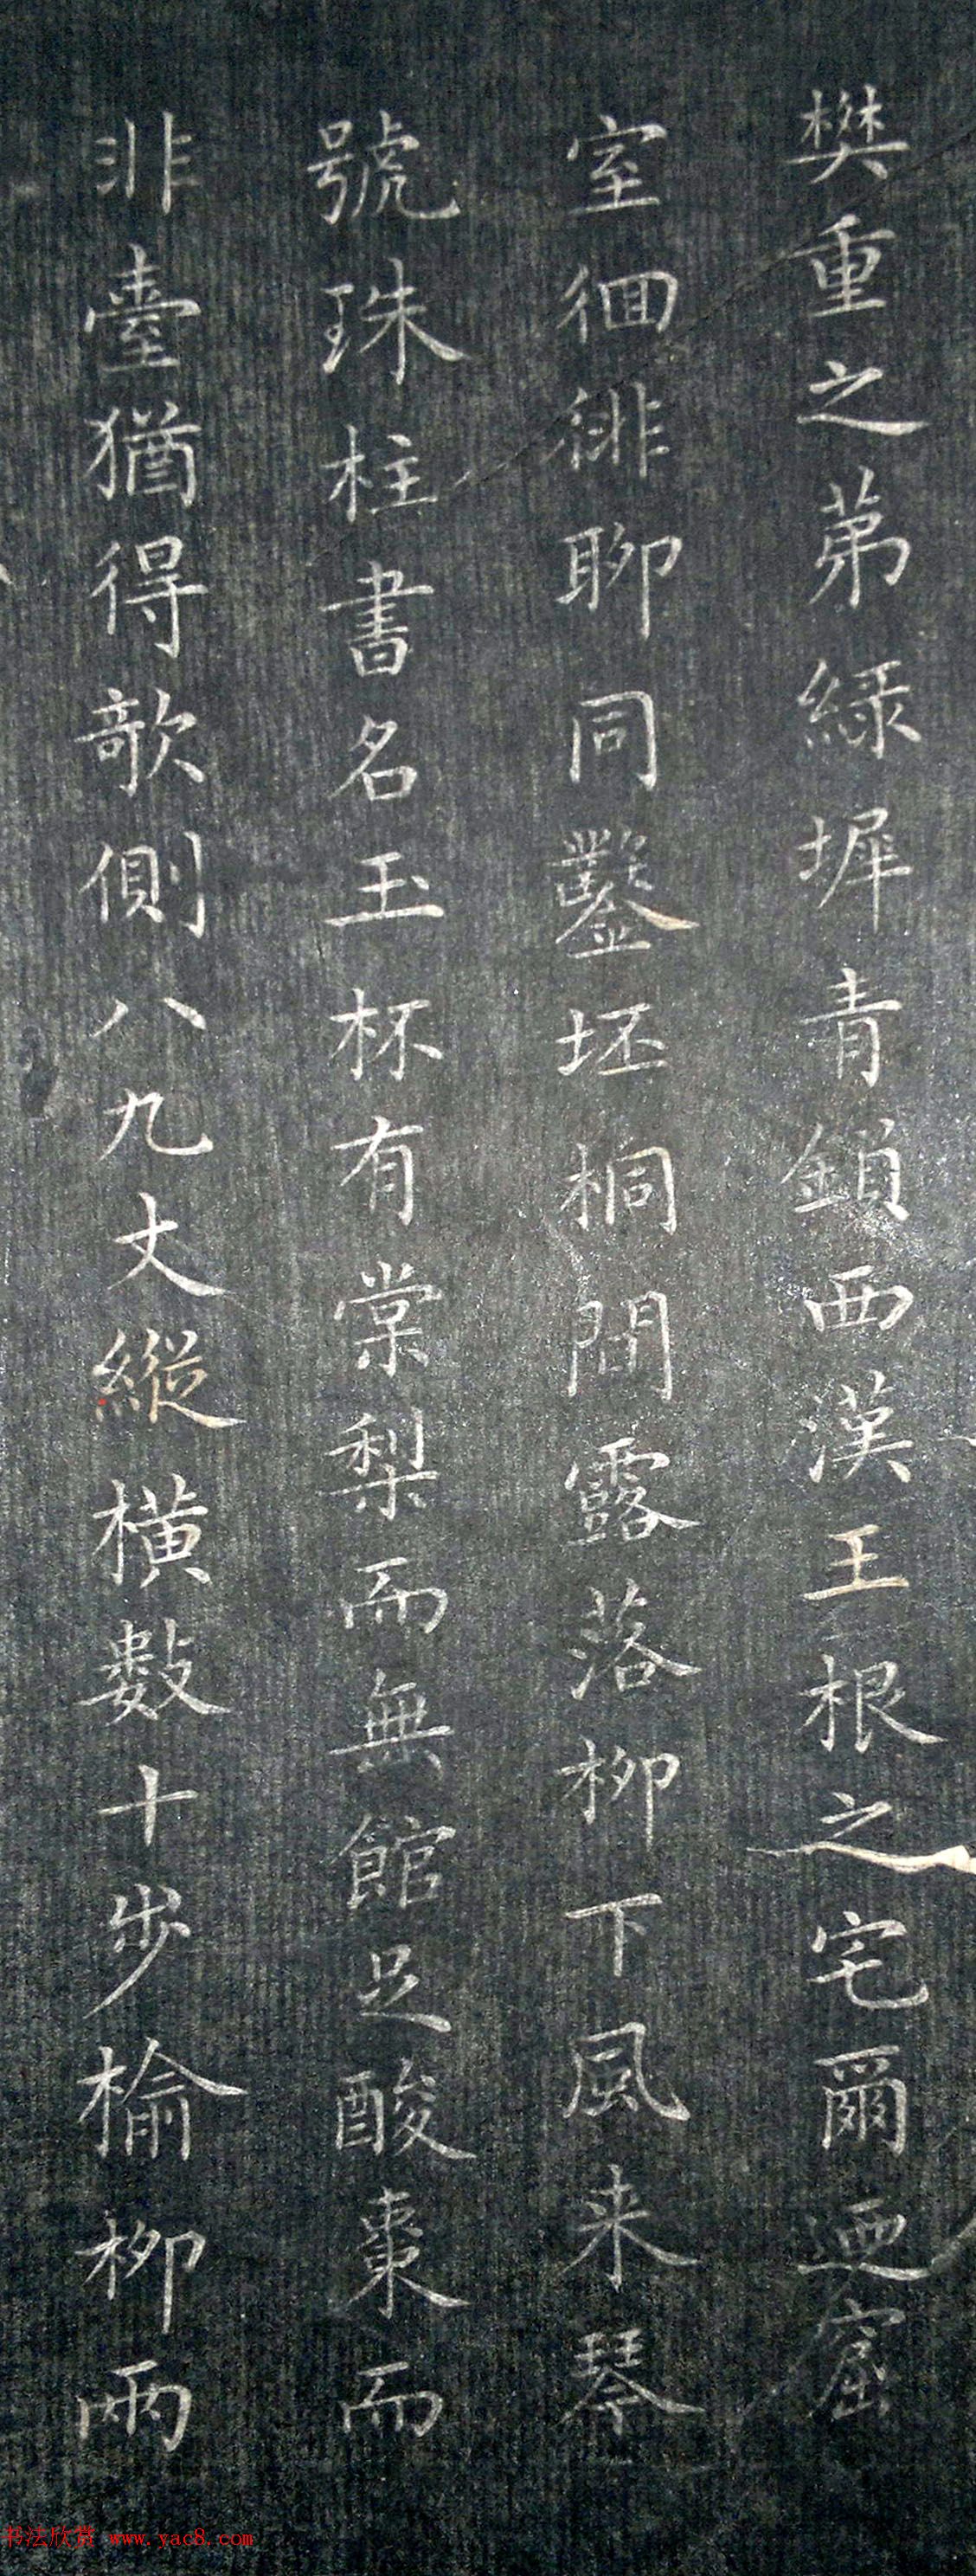 樊重之第綠墀青鎖西漢王根之宅爾迺窟
室徊徘聊同鑿坯桐間露落柳下風来琴
號珠柱書名玉杯有棠梨而無館足酸棗而
非臺猶得欹側八九丈縱橫數十步榆柳兩
书法欣赏 www.yac8.com